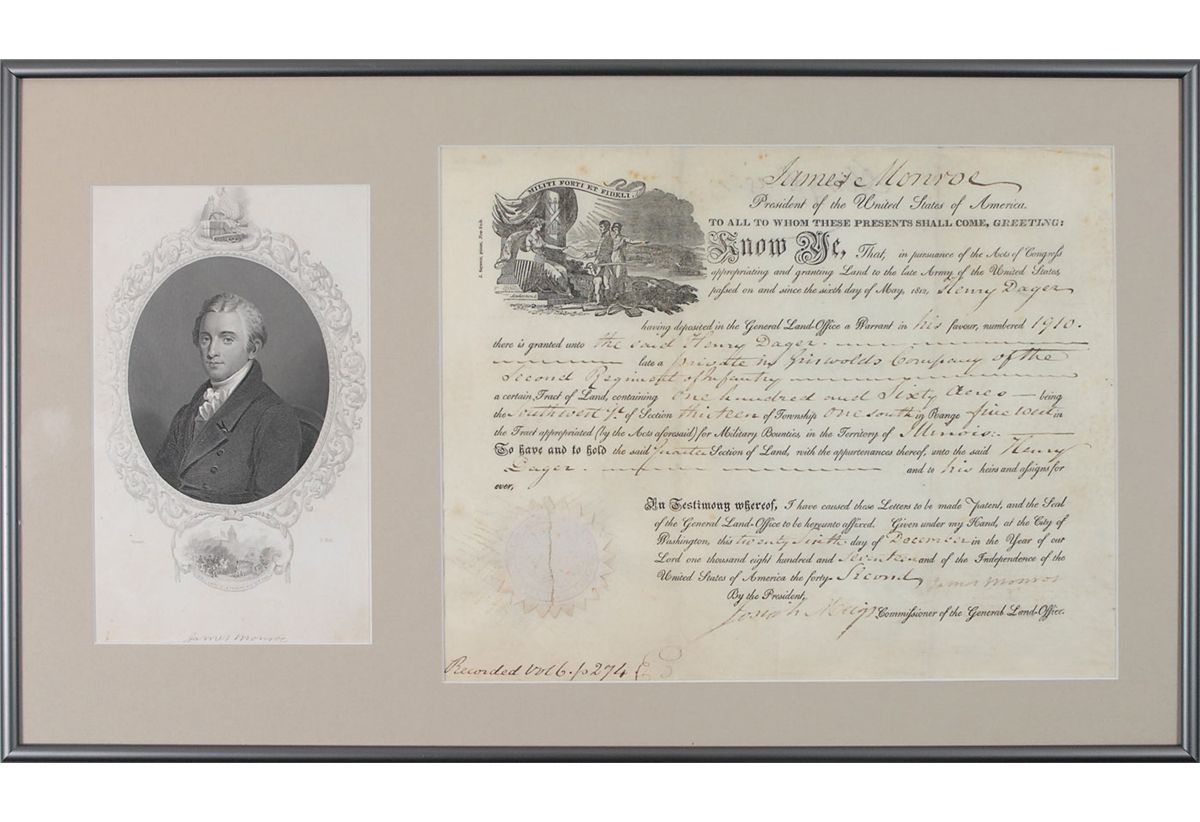 James Monroe
MILITI FORTI ET FIDELI
James Monroe
President of the United States of America.
TO ALL TO WHOM THESE PRESENTS SHALL COME, GREETING:
Know Ye, That, in pursuance of the Acts of Congress
appropriating and granting Land to the late Army of the United States,
passed on and since the sixth day of May, 1812, Henry Dager
having deposited in the General Land-Office a Warrant in his favour, numbered 1910.
there is granted unto the said Henry Dager.
late a private in Griswolds Company of the
Second Regiment of Infantry
a certain Tract of Land, containing One hundred and Sixty Acres being
the of Section thirteen of Township One south in Range five west in
the Tract appropriated (by the Acts aforesaid) for Military Bounties, in the Territory of Illinois:
To have and to hold the said Quarter Section of Land, with the appurtenances thereof, unto the said Henry
Dager. and to his heirs and assigns for
ever,
In Testimony whereof, I have caused these Letters to be made Patent, and the Seal
of the General Land-Office to be hereunto affixed. Given under my Hand, at the City of
Washington, this twenty ninth day of December in the Year of our
Lord one thousand eight hundred and Seventeen and of the Independence of the
United States of America the forty-Second
James Monroe
By the President,
Josiah Meigs Commissioner of the General Land-Office.
Recorded Vol 6. p 274